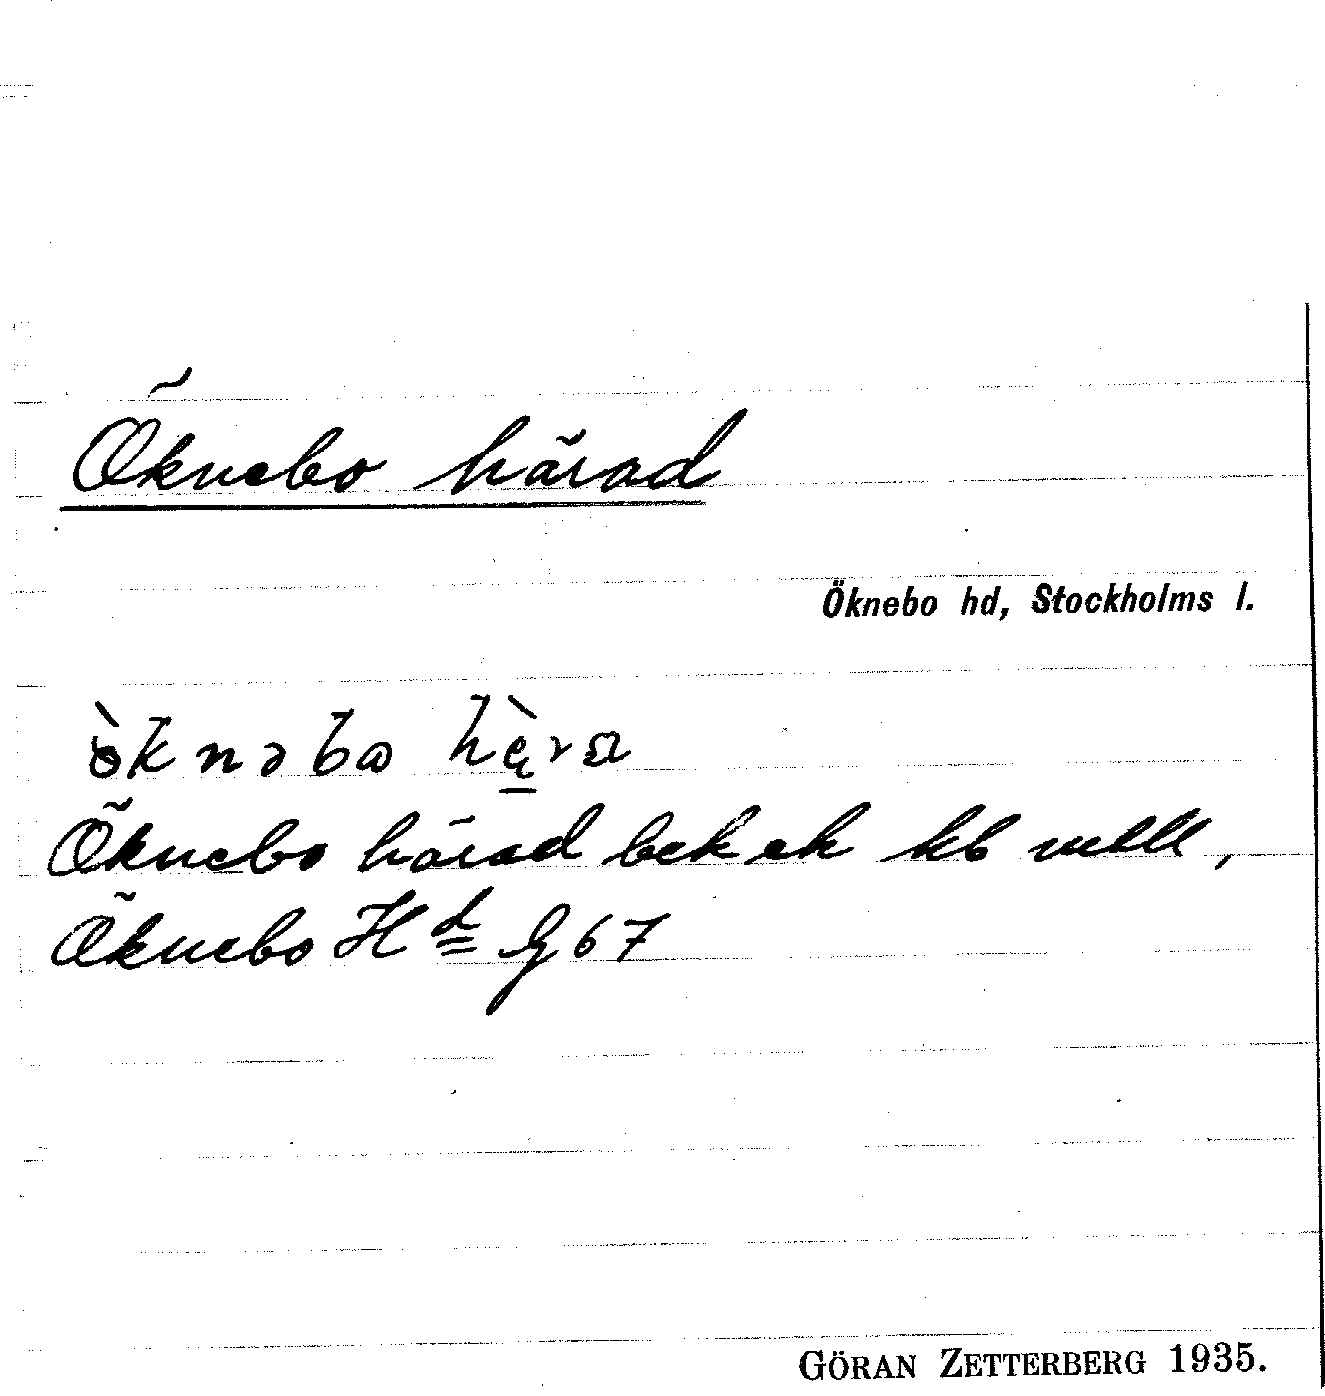 Öknebo härad
Öknebo hd, Stockholms l.
Öknebo härad bek ek kb
Öknebo Hd G 67
GÖRAN ZETTERBERG 1935.